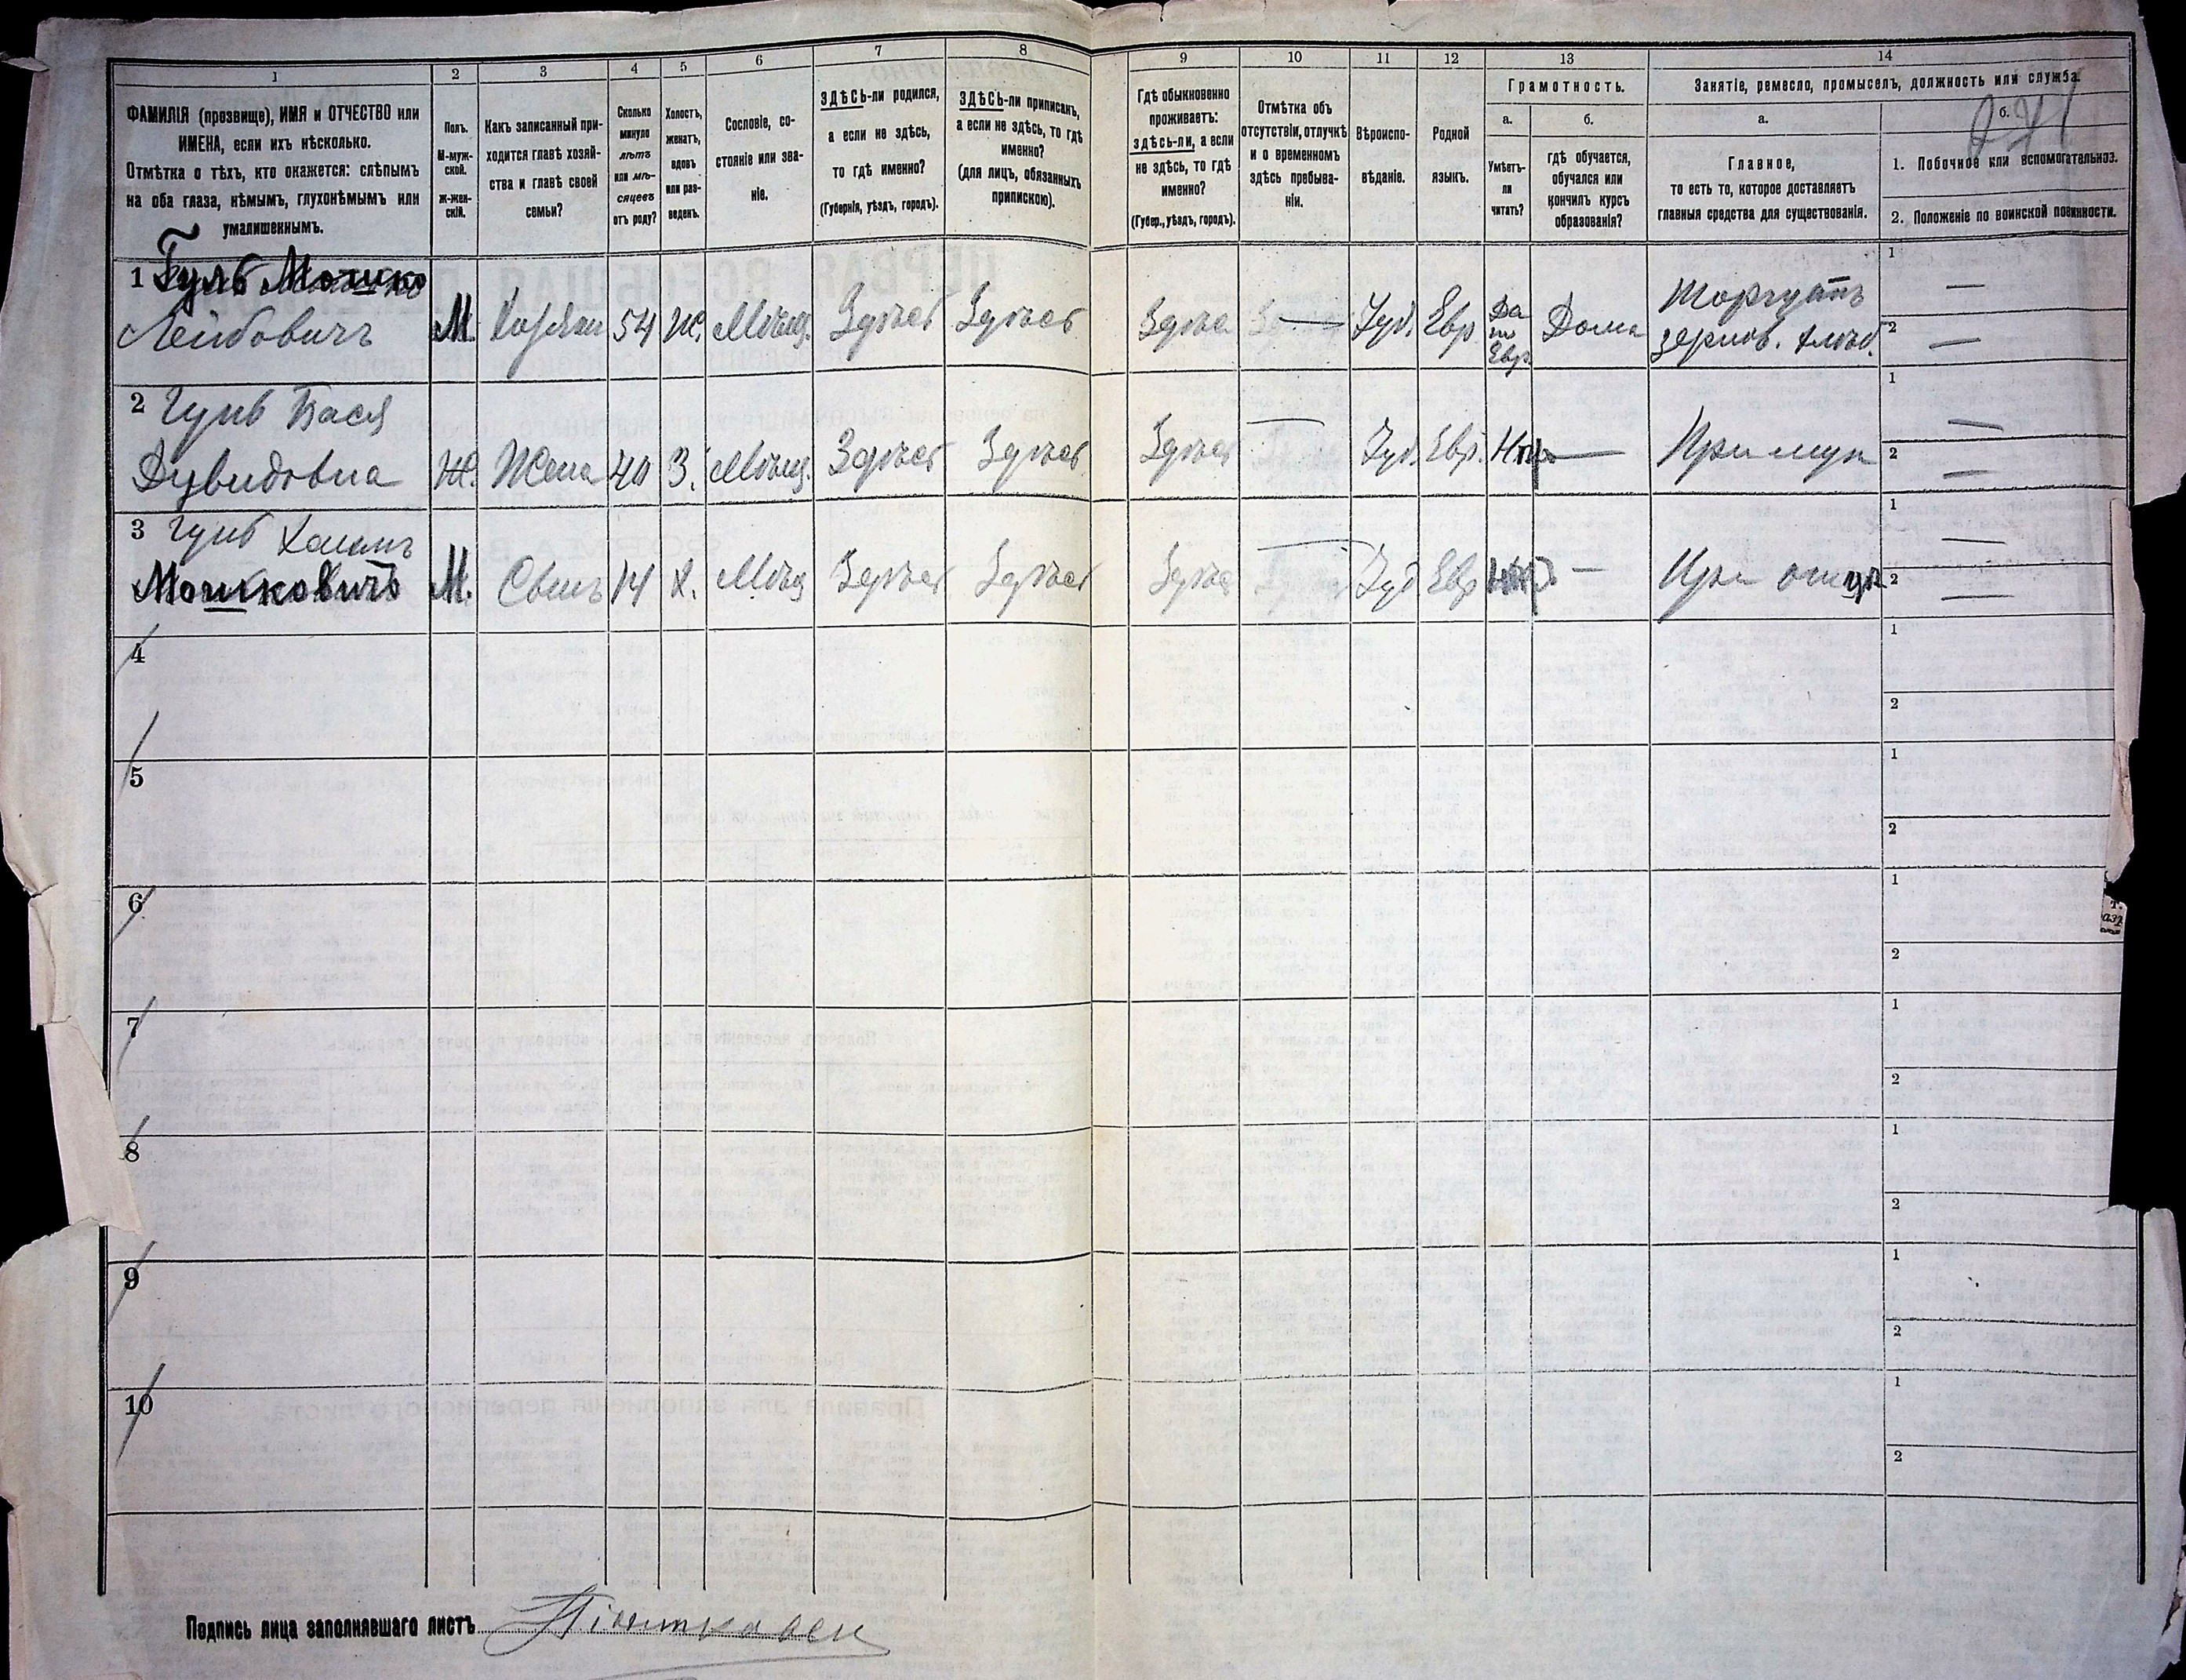 1 2 3 4 5 6 7 8 9 10 11 12 13 14
ФАМИЛІЯ (прозвище), ИМЯ и ОТЧЕСТВО или
ИМЕНА, если ихъ нѣсколько.
Отмѣтка о тѣхъ, кто окажется: слѣпымъ
на оба глаза, нѣмымъ, глухонѣмымъ или
умалишеннымъ.
Полъ.
М-муж-
ской.
Ж-жен-
скій.
Какъ записанный при-
ходится главѣ хозяй-
ства и главѣ своей
семьи?
Сколько
минуло
лѣтъ
или мѣ-
сяцевъ
отъ роду?
Холостъ,
женатъ,
вдовъ
или раз-
веденъ.
Сословіе, со-
стояніе или зва-
ніе.
ЗДѢСЬ-ли родился,
а если не здѣсь,
то гдѣ именно?
(Губернія, уѣздъ, городъ).
ЗДѢСЬ-ли приписанъ,
а если не здѣсь, то гдѣ
именно?
(для лицъ, обязанныхъ
припискою).
Гдѣ обыкновенно
проживаетъ:
здѣсь-ли, а если
не здѣсь, то гдѣ
именно?
(Губер., уѣздъ, городъ).
Отмѣтка объ
отсутствіи, отлучкѣ
и о временномъ
здѣсь пребыва-
ніи.
Вѣроиспо-
вѣданіе.
Родной
языкъ.
Грамотность.
а.
Умѣетъ-
ли
читать?
б.
гдѣ обучается,
обучался или
кончилъ курсъ
образованія?
Занятіе, ремесло, промыселъ, должность или служба.
а.
Главное,
то есть то, которое доставляетъ
главныя средства для существованія.
б.
1. Побочное или вспомогательноз.
2. Положеніе по воинской повинности.
1 Гулъ Мошко
Лейбовичъ М. Хозяин 54 Ж. Мѣщ. Здѣсь Здѣсь Здѣсь — Іуд. Евр Да по Евр. Дома Торгуетъ зернов. хлѣб. 1 — 2 —
2 Гулъ Бася
Дувидовна Ж. Жена 40 З. Мѣщ. Здѣсь Здѣсь Здѣсь — Іуд. Евр. Нѣтъ — При мужѣ 1 — 2 —
3 Гулъ Хаимъ
Мошковичъ М. Сынъ 14 Х. Мѣщ Здѣсь Здѣсь Здѣсь — Іуд Евр — При отцѣ 1 — 2 —
4 1
2
5 1
2
6 1
2
7 1
2
8 1
2
9 1
2
10 1
2
Подпись лица заполнявшаго листъ